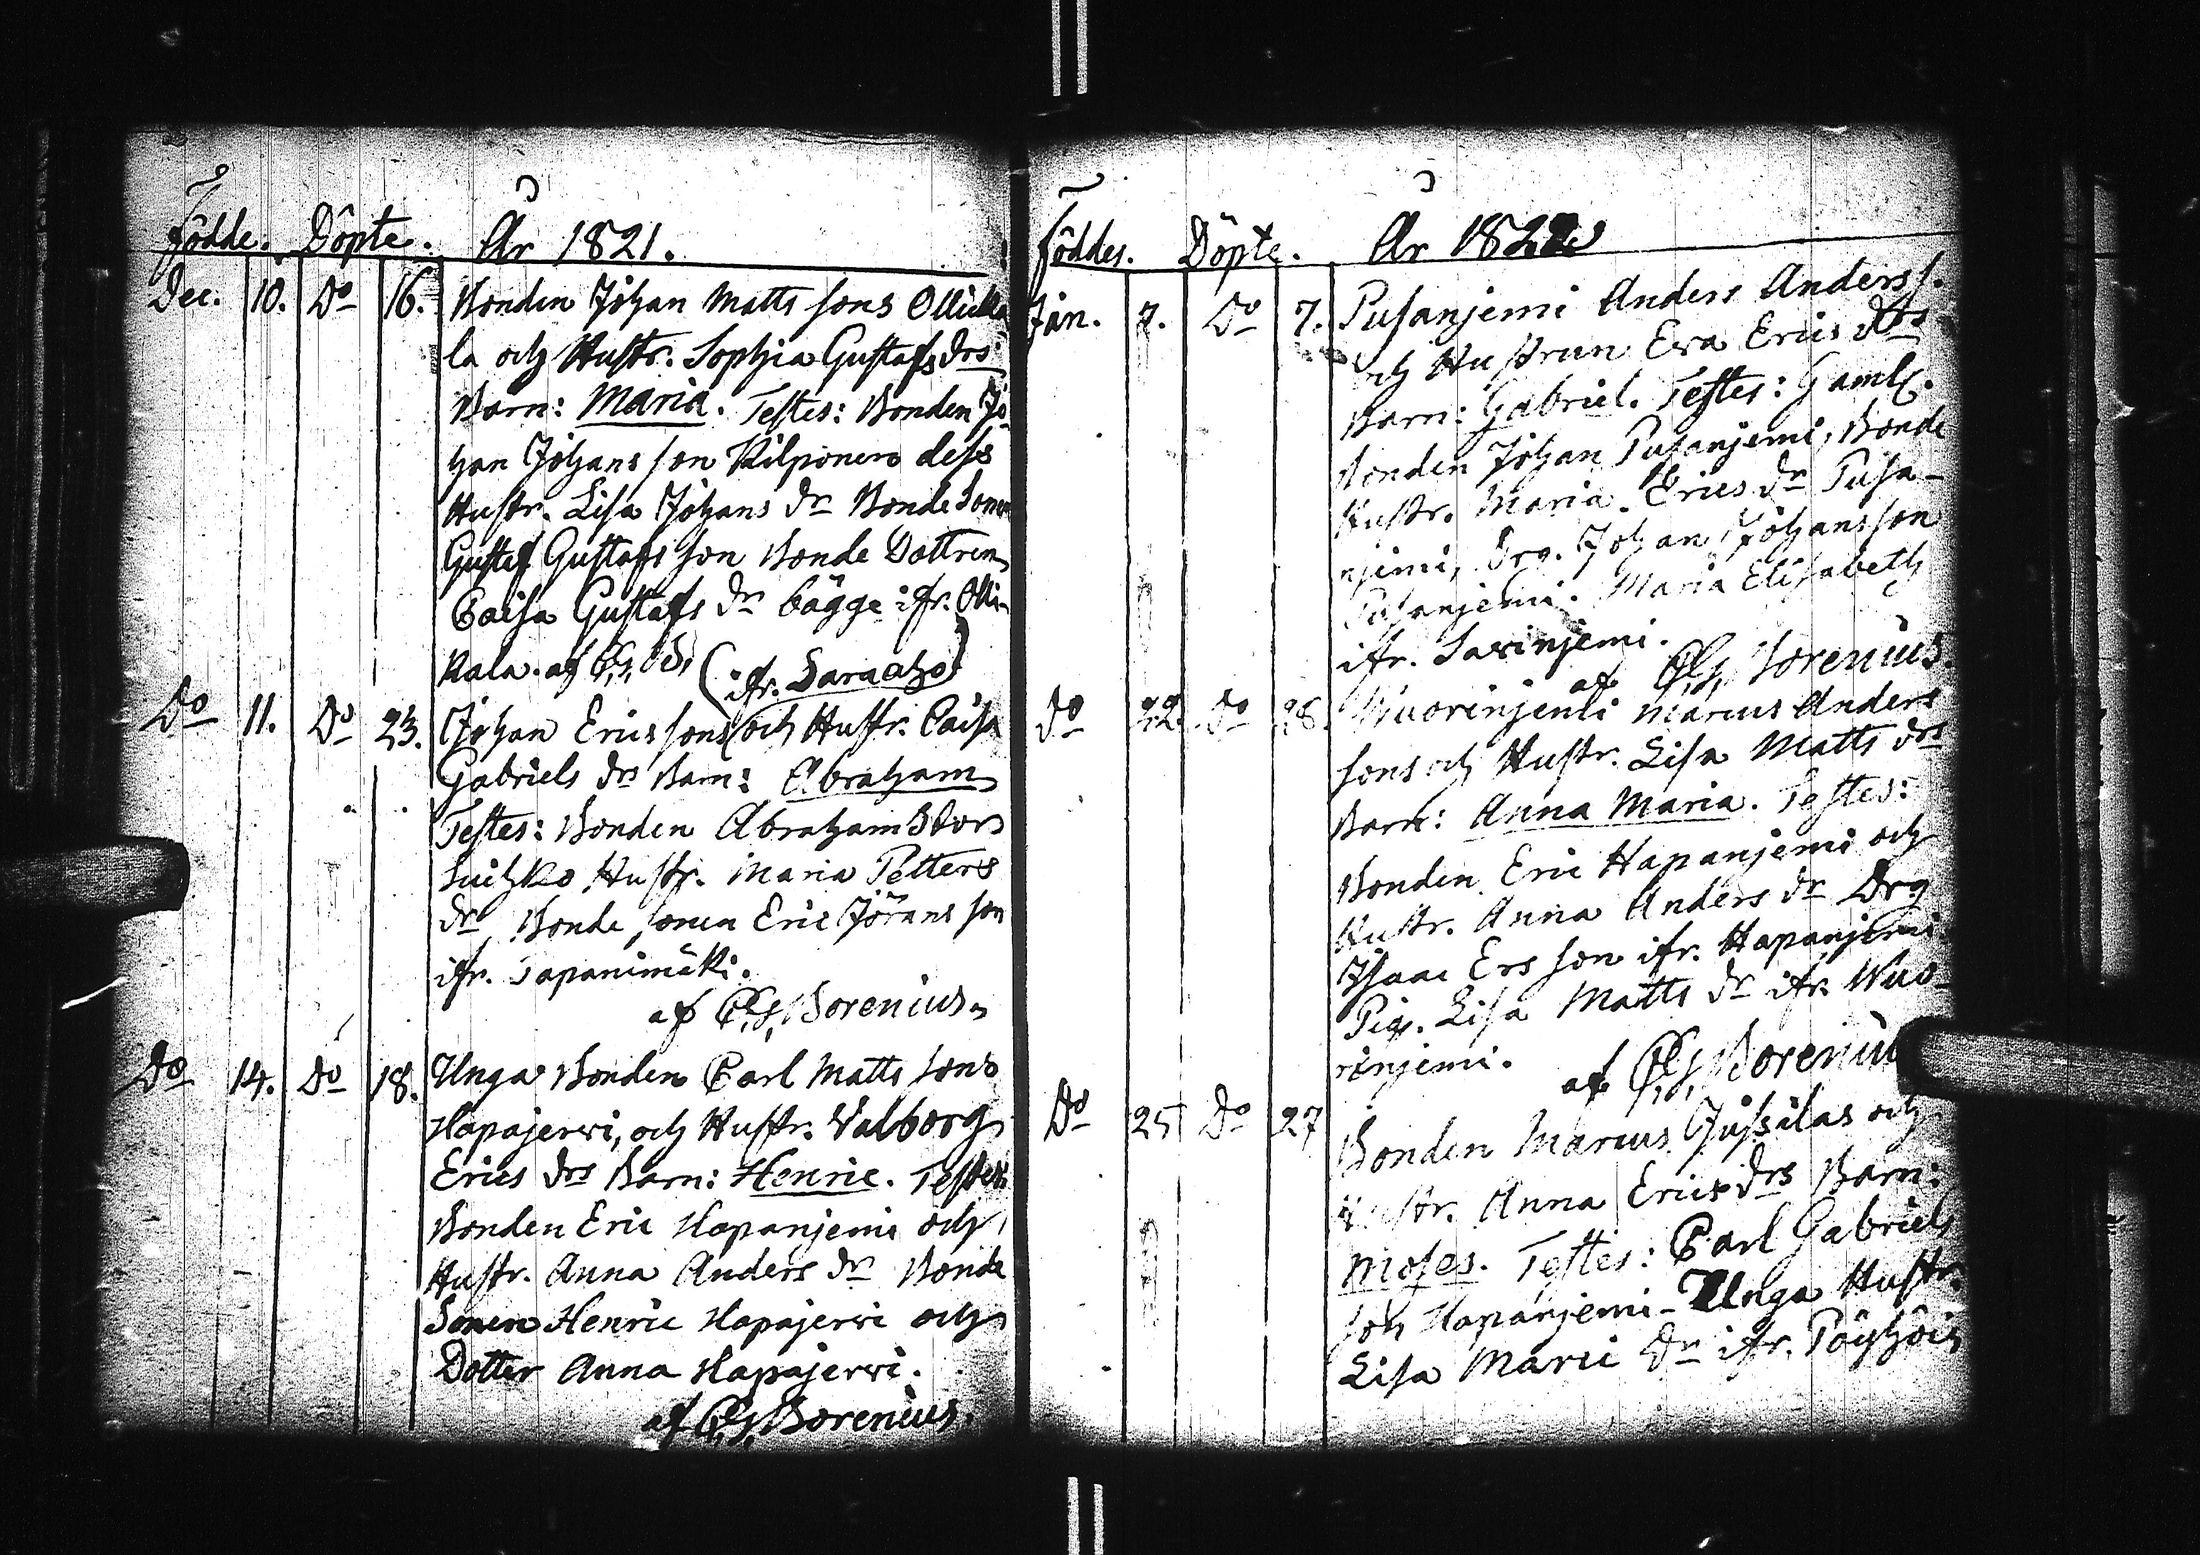 Födde. Döpte. År 1821.
Dec. 10. Do 16. Bonden Johan Matts sons Ollicka
la och Hustr. Sophia Gustafs drs
Barn: Maria. Testes: Bonden Jo
han Johans son Kilponen dess
Hustr. Lisa Johans dr Bonde Sonen
Gustaf Gustafs son Bonde Dottren
Caisa Gustafs dr bägge ifr. Olli-
kala. af C.G. B.
(ifr. Saraaho)
Do 11. Do 23. Johan Erics sons och Hustr. Caisa
Gabriels drs Barn: Abraham
Testes: Bonden Abraham Stor
Suihko, Hustr. Maria Petters
dr Bonde sonen Eric Jörans son
ifr. Tapanimäki.
af C.G. Borenius
Do 14. Do 18. Unga Bonden Carl Matts sons
Hapajerwi, och Hustr. Valborg
Erics drs Barn: Henric. Testes:
Bonden Eric Hapanjemi och
Hustr. Anna Anders dr Bonde
Sonen Henric Hapajerwi och
Dotter Anna Hapajerwi.
af C.G. Borenius.
Föddes. Döpte. År 1822
Jan. 7. Do 7. Pusanjemi Anders Anders s.
och Hustrun Eva Erics drs
Barn: Gabriel. Testes: Gaml.
bonden Johan Pusanjemi, Bonde
Hustr. Maria Erics dr Pusa-
njemi, Drg. Johan Johansson
Pusanjemi. Maria Elisabeth
ifr. Savinjemi.
af C.G. Borenius.
Do 22. Do 28. Wuorinjemi Marcus Anders
sons och Hustr. Lisa Matts drs
Barn: Anna Maria. Testes:
Bonden Eric Hapanjemi och
Hustr. Anna Anders dr Drg
Isaac Ers son ifr. Hapanjemi
Pig. Lisa Matts dr ifr. Wuo-
rinjemi.
af C.G. Borenius
Do 25 Do 27 Bonden Marcus Jussilas och
Hustr. Anna Erics drs Barn:
Moses. Testes: Carl Gabriels
son Hapanjemi - Unga Hustr.
Lisa Marie dr ifr. Pöyhöis